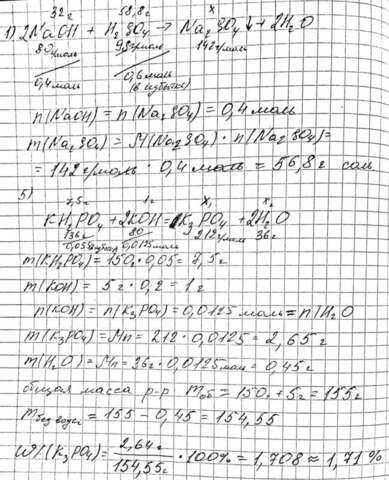 32г 58,8г x
1) 2NaOH + H₂SO₄ → Na₂SO₄↓ + 2H₂O
80г/моль 98г/моль 142г/моль
0,4моль 0,6моль
(в избытке)
n(NaOH) = n(Na₂SO₄) = 0,4 моль
m(Na₂SO₄) = M(Na₂SO₄) · n(Na₂SO₄) =
= 142 г/моль · 0,4 моль = 56,8 г соли.
5)
7,5г 1г x₁ x₂
KH₂PO₄ + 2KOH = K₃PO₄ + 2H₂O
136г 80 212г/моль 36г
0,0125моль
m(KH₂PO₄) = 150г · 0,05 = 7,5г
m(KOH) = 5г · 0,2 = 1г
n(KOH) = n(K₃PO₄) = 0,0125 моль = n(H₂O
m(K₃PO₄) = Mn = 212 · 0,0125 = 2,65г
m(H₂O) = Mn = 36г · 0,0125моль = 0,45г
общая масса р-р m об = 150г + 5г = 155г
m без воды = 155 – 0,45 = 154,55
W%(K₃PO₄) = 2,64г / 154,55г · 100% = 1,708 ≈ 1,71%